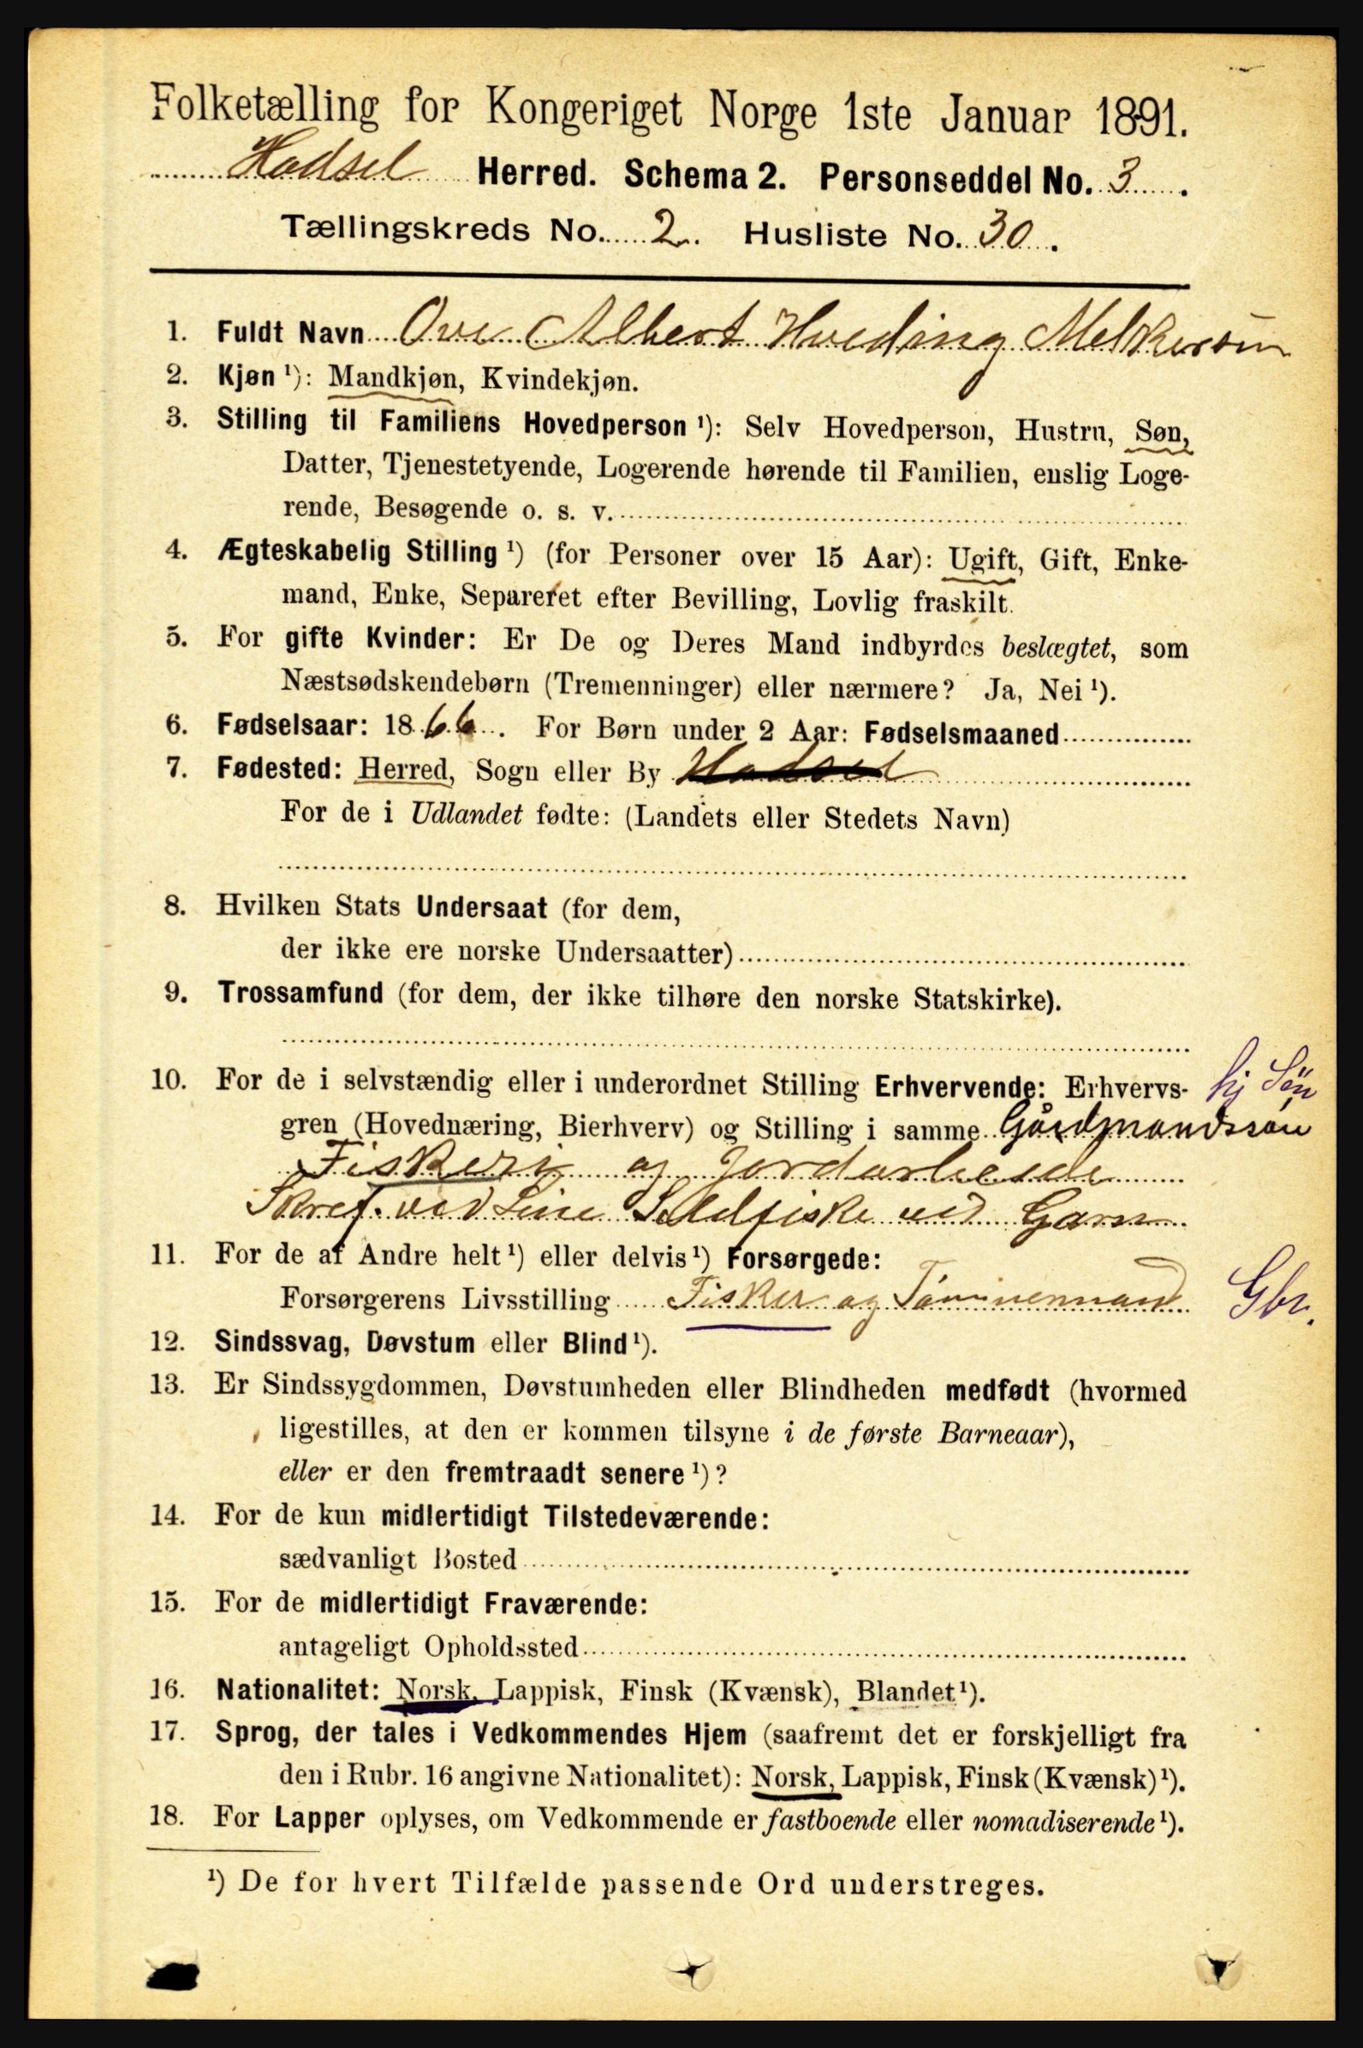 Folketælling for Kongeriget Norge 1ste Januar 1891.
Hadsel Herred. Schema 2. Personseddel No. 3.
Tællingskreds No. 2. Husliste No. 30.
1. Fuldt Navn Ove Albert Hveding Melkersøn
2. Kjøn ¹): Mandkjøn, Kvindekjøn.
3. Stilling til Familiens Hovedperson ¹): Selv Hovedperson, Hustru, Søn,
Datter, Tjenestetyende, Logerende hørende til Familien, enslig Loge-
rende, Besøgende o. s. v.
4. Ægteskabelig Stilling ¹) (for Personer over 15 Aar): Ugift, Gift, Enke-
mand, Enke, Separeret efter Bevilling, Lovlig fraskilt.
5. For gifte Kvinder: Er De og Deres Mand indbyrdes beslægtet, som
Næstsødskendebørn (Tremenninger) eller nærmere? Ja, Nei ¹).
6. Fødselsaar: 1866. For Børn under 2 Aar: Fødselsmaaned
7. Fødested: Herred, Sogn eller By Hadsel
For de i Udlandet fødte: (Landets eller Stedets Navn)
8. Hvilken Stats Undersaat (for dem,
der ikke ere norske Undersaatter)
9. Trossamfund (for dem, der ikke tilhøre den norske Statskirke).
10. For de i selvstændig eller i underordnet Stilling Erhvervende: Erhvervs- hj Søn
gren (Hovednæring, Bierhverv) og Stilling i samme Gårdmandssøn
Fiskeri og Jordarbeide
Skref. ved Line Sildfiske ved Garn
11. For de af Andre helt ¹) eller delvis ¹) Forsørgede:
Forsørgerens Livsstilling Fisker og Tømmermand Gbr.
12. Sindssvag, Døvstum eller Blind ¹).
13. Er Sindssygdommen, Døvstumheden eller Blindheden medfødt (hvormed
ligestilles, at den er kommen tilsyne i de første Barneaar),
eller er den fremtraadt senere ¹)?
14. For de kun midlertidigt Tilstedeværende:
sædvanligt Bosted
15. For de midlertidigt Fraværende:
antageligt Opholdssted
16. Nationalitet: Norsk, Lappisk, Finsk (Kvænsk), Blandet ¹).
17. Sprog, der tales i Vedkommendes Hjem (saafremt det er forskjelligt fra
den i Rubr. 16 angivne Nationalitet): Norsk, Lappisk, Finsk (Kvænsk) ¹).
18. For Lapper oplyses, om Vedkommende er fastboende eller nomadiserende ¹).
¹) De for hvert Tilfælde passende Ord understreges.